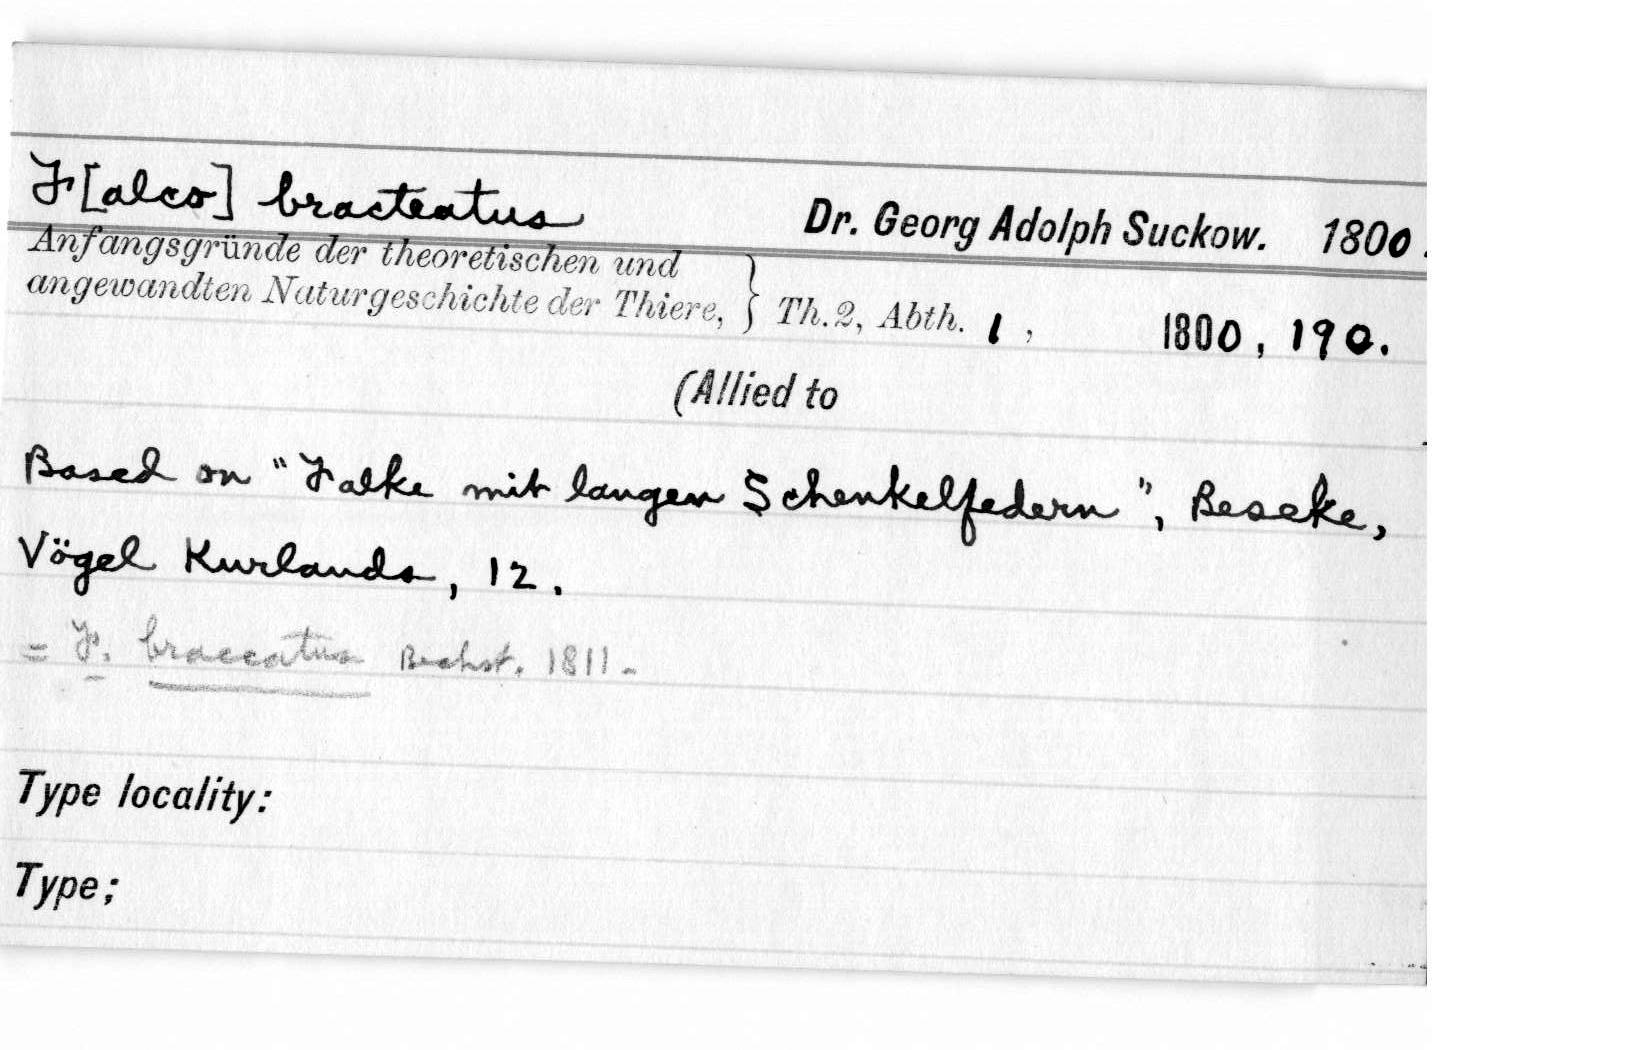 F[alco] bracteatus Dr. Georg Adolph Suckow. 1800.
Anfangsgründe der theoretischen und
angewandten Naturgeschichte der Thiere, } Th. 2, Abth. 1, 1800, 190.
(Allied to
Based on "Falke mit langen Schenkelfedern", Beseke,
Vögel Kurlands, 12.
= F. braccatus Bechst. 1811.
Type locality:
Type;